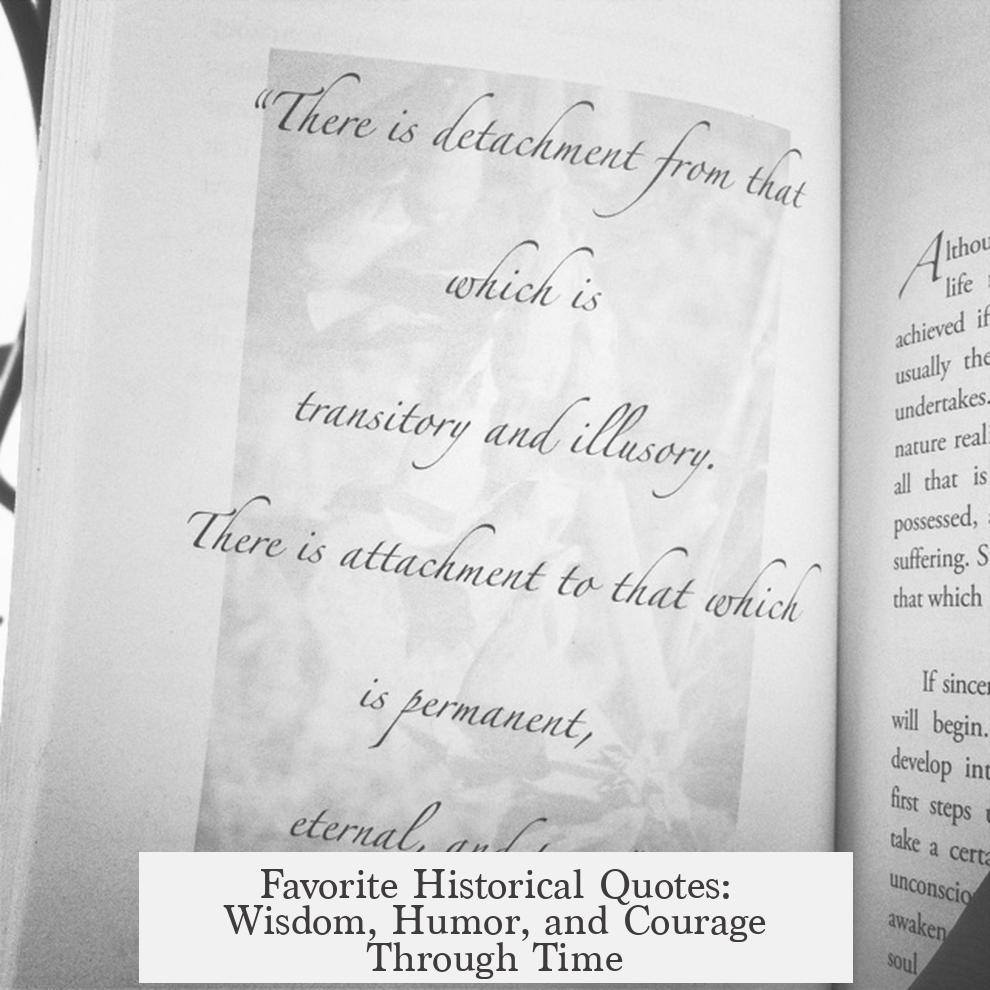 “There is detachment from that
which is
transitory and illusory.
There is attachment to that which
is permanent,
eternal, and
life
achieved if
usually the
undertakes.
nature
all that is
possessed,
suffering.
that which
If
will begin.
develop
first steps
take a
soul
Favorite Historical Quotes:
Wisdom, Humor, and Courage
Through Time